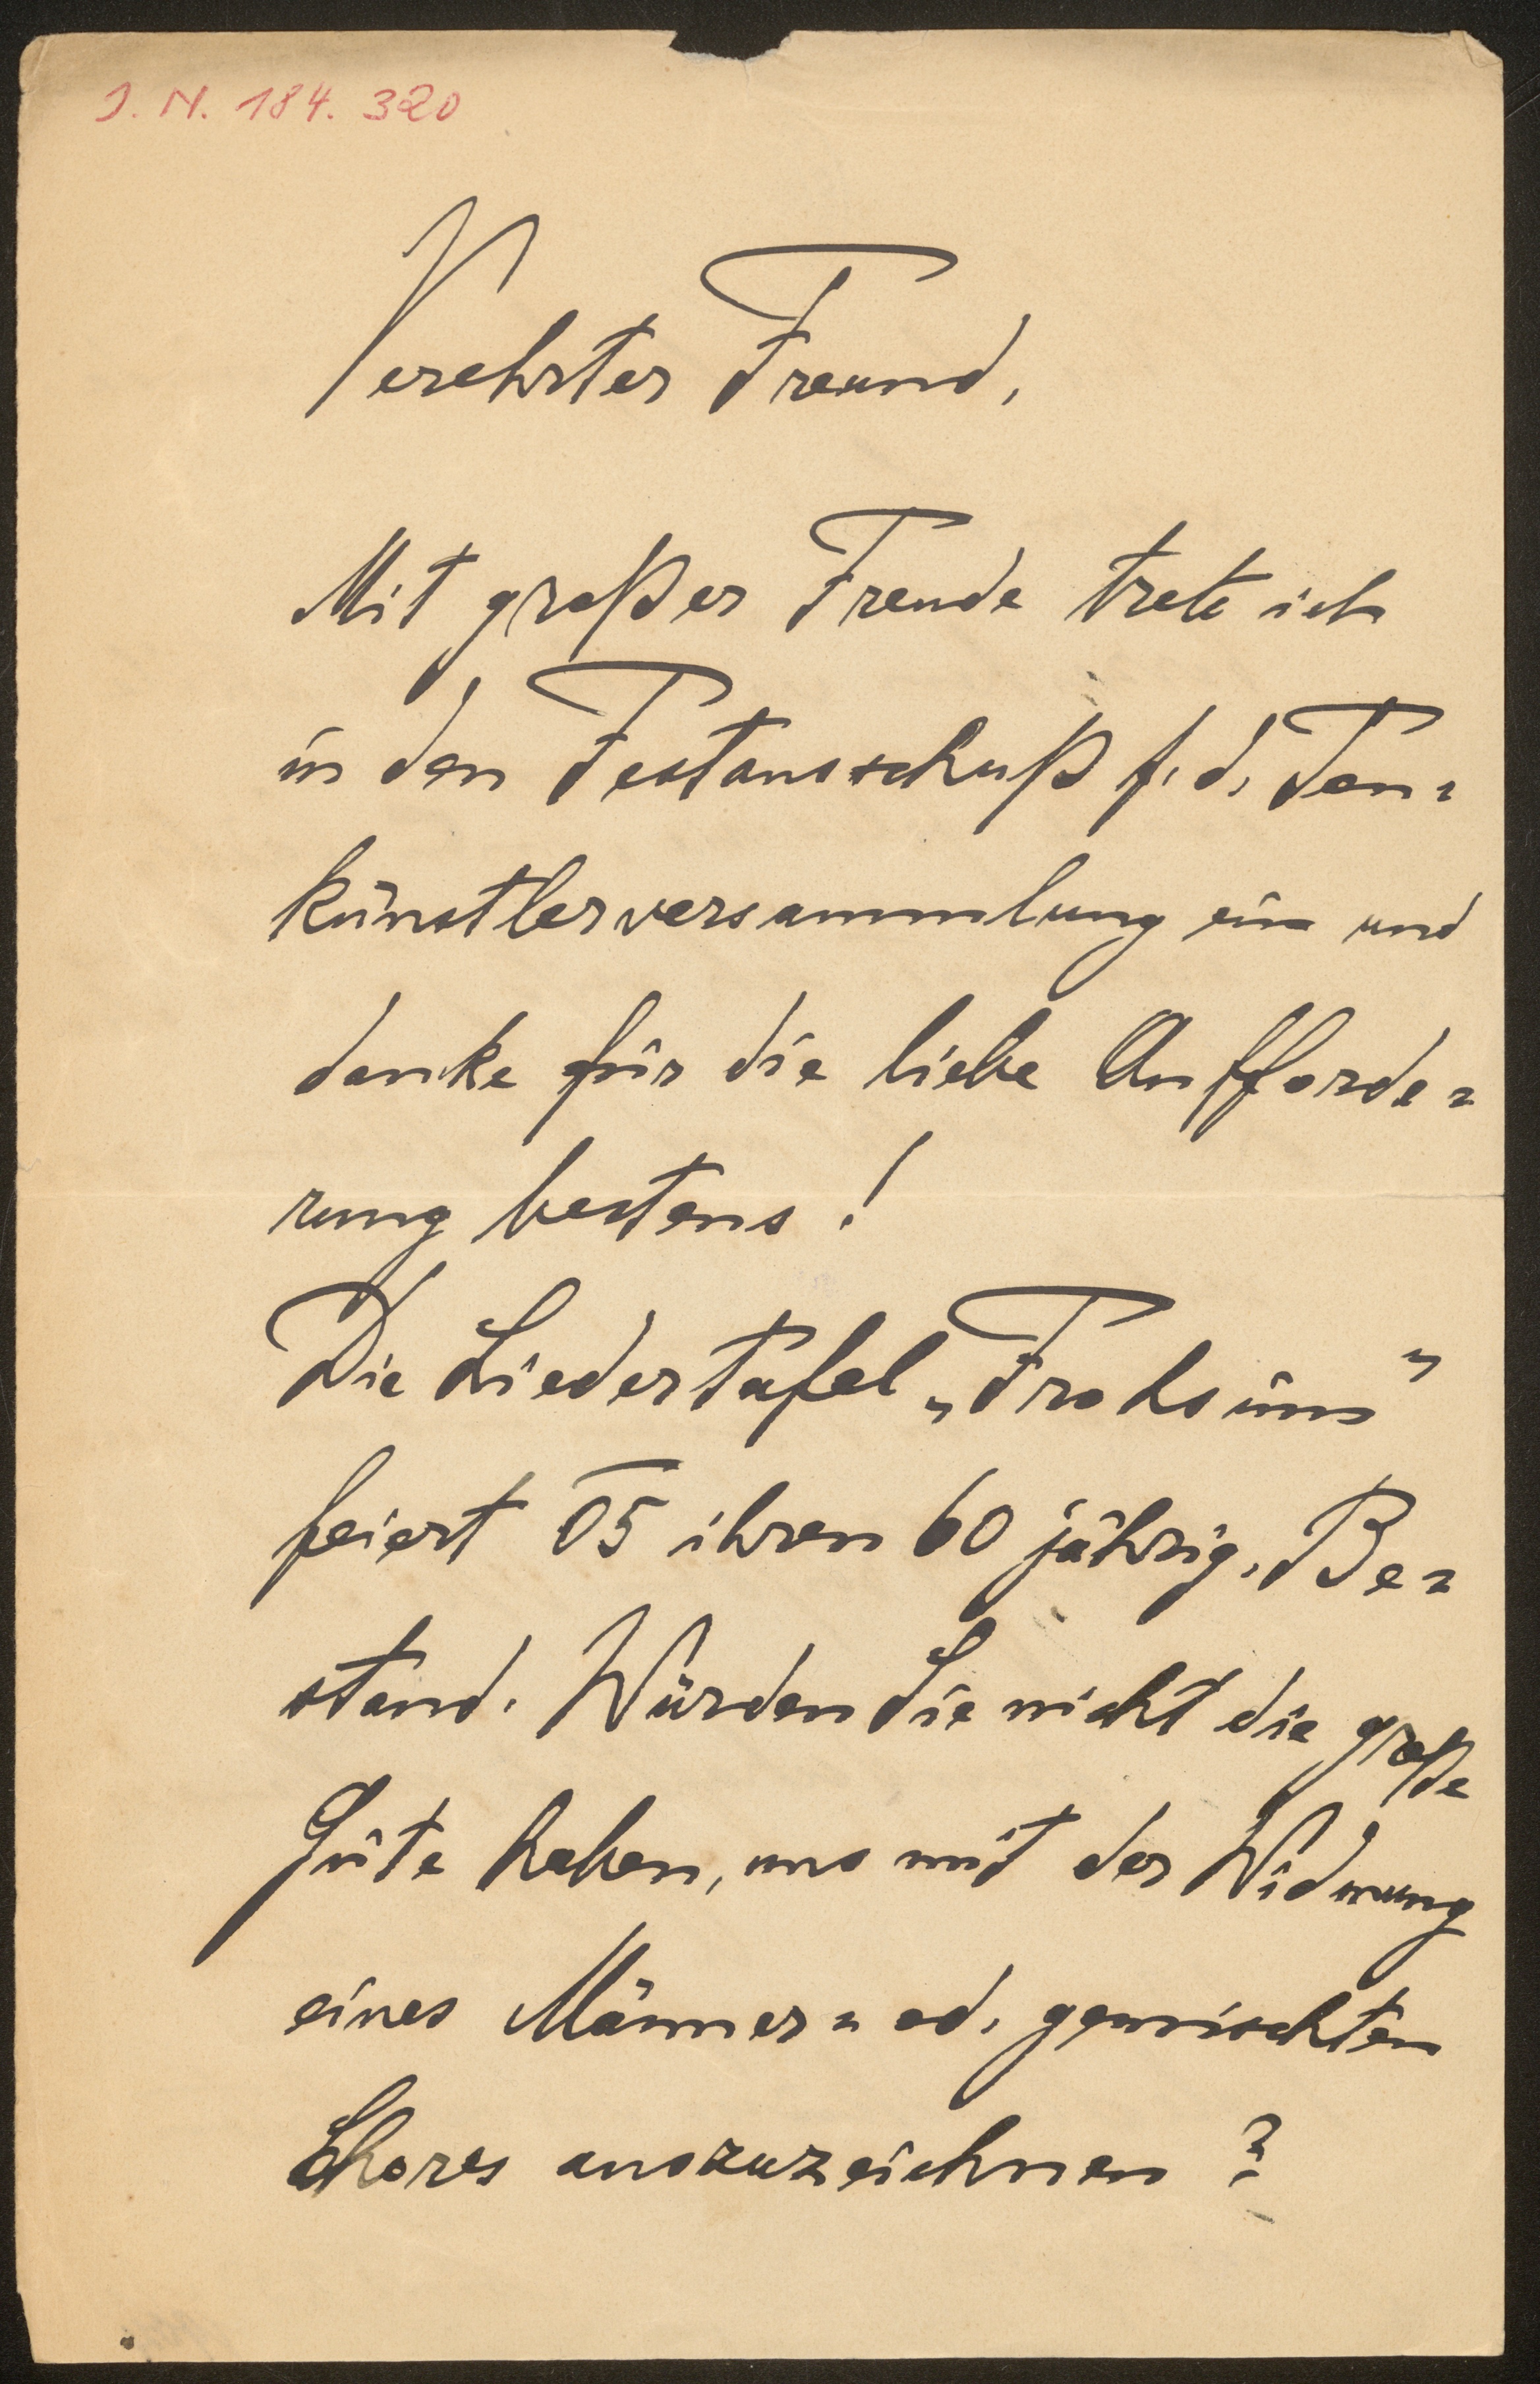 J. N. 184. 320
Verehrter Freund,
Mit großer Freude trete ich
in den Festausschuß f. d. Ton=
künstlerversammlung ein und
danke für die liebe Aufforde=
rung bestens!
Die Liedertafel „Frohsinn"
feiert 05 ihren 60 jährig. Be=
stand. Würden Sie nicht die große
Güte haben, uns mit der Widmung
eines Männer= od. gemischten
Chores auszuzeichnen?